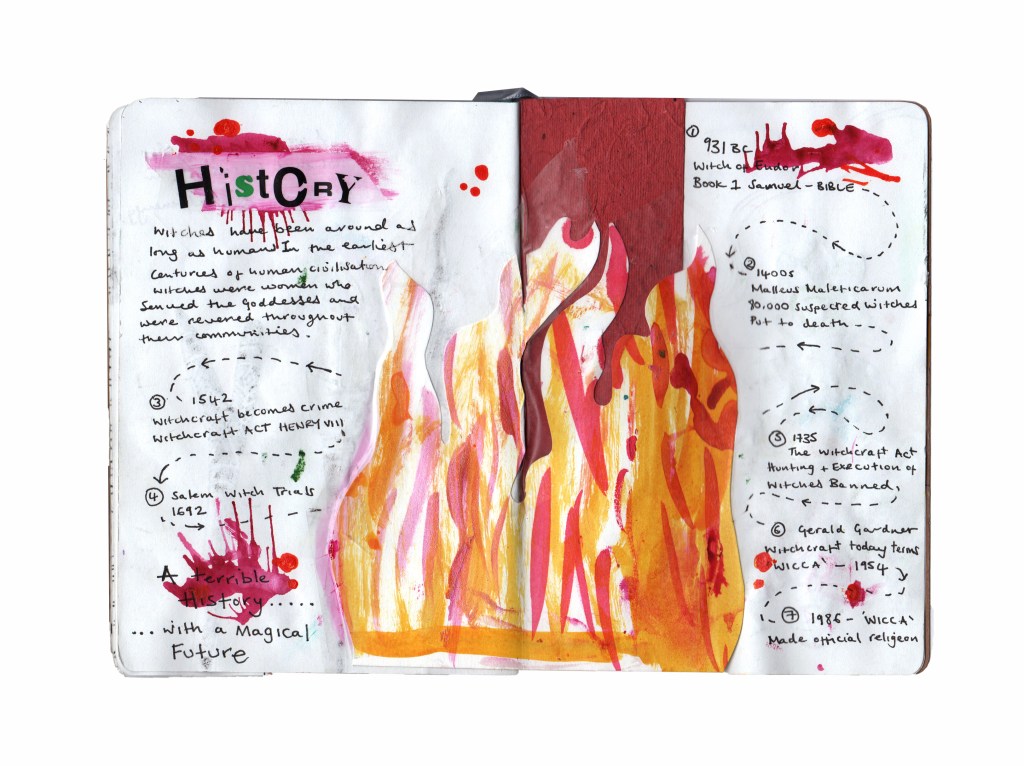 HistORY
Witches have been around as
long as humans In the earliest
centuries of human civilisation
witches were women who
Served the Goddesses and
were revered throughout
their communities.
① 931 BC
Witch of Endor
Book 1 Samuel - BIBLE
② 1400s
Malleus Maleficarum
80,000 suspected witches
Put to death
③ 1542
Witchcraft becomes crime
Witchcraft ACT HENRY VIII
④ Salem Witch Trials
1692
⑤ 1735
The Witchcraft Act
Hunting + Execution of
Witches Banned,
⑥ Gerald Gardner
Witchcraft today terms
'WICCA' - 1954
⑦ 1986 - 'WICCA'
Made official religeon
A terrible
History.....
... with a Magical
Future